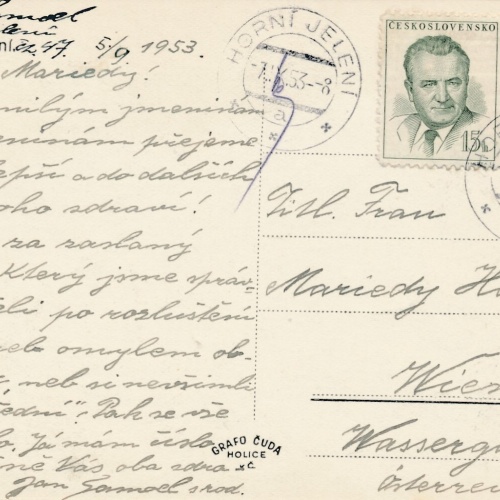 Jelení
47. 5/9 1953.
Mariedy!
milým jmeninám
přejeme
lepší a do dalších
oho zdraví!
za zaslaný
který jsme správ-
ěli po rozluštění
neb omylem ob-
neb si nevšimli
ední". Pak se vše
Já mám číslo
ně Vás oba zdra
Jan Samoel s rod.
HORNÍ JELENÍ
ČESKOSLOVENSKO
15h
Titl. Frau
Mariedy H
Wien
Wasserga
Österre
GRAFO ČUDA
HOLICE
v Č.